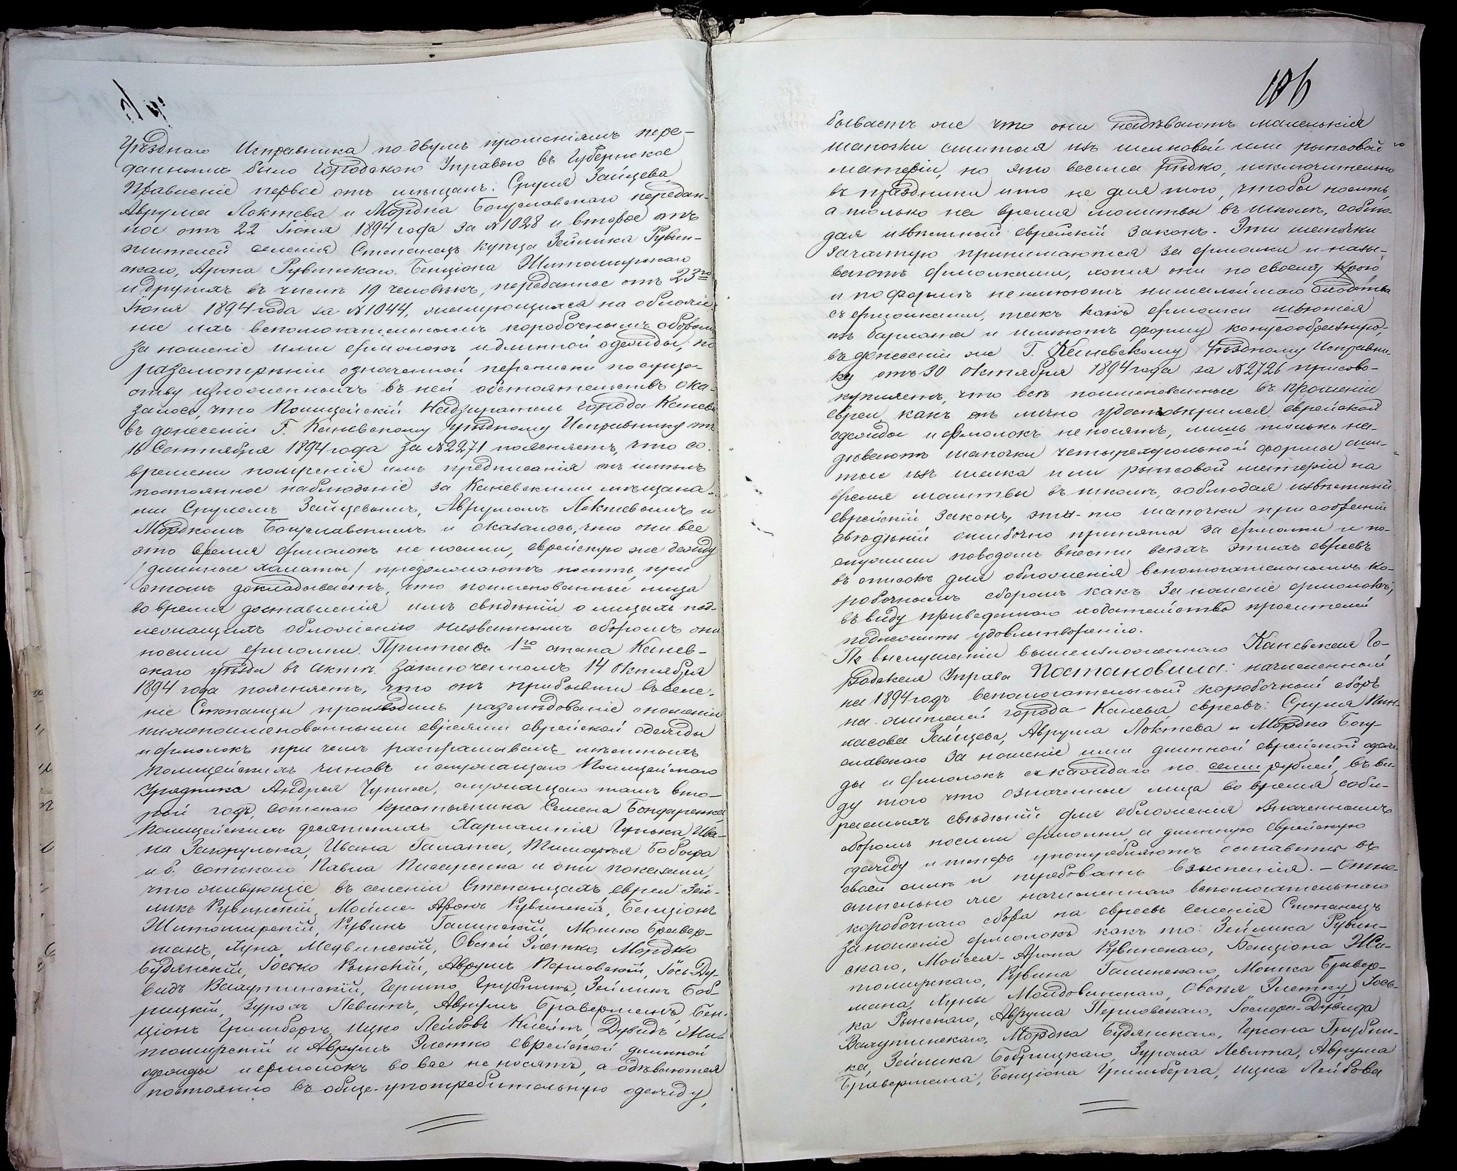 Уѣзднаго Исправника по двумъ прошеніямъ пере-
даннымъ было Городскою Управою въ Губернское
Правленіе первое отъ мѣщанъ: Сруля Заицева,
Аврума Локтева и Мордка Богуславскаго передан-
ное отъ 22 Іюня 1894 года за №1028 и второе отъ
жителей селенія Степанецъ купца Зейлика Рувин-
скаго, Арона Рувинскаго, Бенціона Житомирскаго
и другихъ въ числѣ 19 человѣкъ, переданное отъ 23го
Іюня 1894 года за №1044, жалующихся на обложе-
ніе ихъ вспомогательнымъ коробочнымъ сборомъ
за ношеніе ими ермолокъ и длинной одежды, по
разсмотрѣніи означенной переписки по суще-
ству изложенныхъ въ ней обстоятельствъ ока-
залось, что Полицейскій Надзиратель города Канева
въ донесеніи Г. Каневскому Уѣздному Исправнику отъ
16 Сентября 1894 года за №2271 поясняетъ, что со
времени полученія имъ предписанія онъ имѣлъ
постоянное наблюденіе за Каневскими мѣщана-
ми Срулемъ Зайцевымъ, Аврумомъ Локтевымъ и
Мордкомъ Богуславскимъ и оказалось, что они все
это время ермолокъ не носили, еврейскую же одежду
/длинные халаты/ продолжаютъ носить, при
этомъ докладываетъ, что поименованныя лица
во время доставленія имъ свѣдѣній о лицахъ под-
лежащихъ обложенію названнымъ сборомъ они
носили ермолки. Приставъ 1го стана Канев-
скаго уѣзда въ актѣ заключенномъ 14 Октября
1894 года поясняетъ, что онъ прибывши въ селе-
ніе Степанцы производилъ разслѣдованіе о ношеніи
нижепоименованными евреями еврейской одежды
и ермолокъ при чемъ распрашивалъ мѣстныхъ
полицейскихъ чиновъ и служащаго Полицейскаго
Урядника Андрея Чуприса, служащаго тамъ вто-
рой годъ, сотскаго крестьянина Семена Бондаренка
полицейскихъ десятскихъ Харлампія Гунька, Ива-
на Загорулька, Ивана Галата, Тимофея Бобыря
и б. сотскаго Павла Писаренка и они показали,
что живущіе въ селеніи Степанцахъ евреи Зей-
ликъ Рувинскій, Мойше-Аронъ Рувинскій, Бенціонъ
Житомирскій, Рувинъ Галинскій, Мошко Бравер-
манъ, Луна Медвинскій, Овсей Злотко, Мордко
Будянскій, Іосько Рынскій, Аврумъ Перловскій, Гось-Ду-
видъ Валутинскій, Гершко Грубникъ, Зейликъ Боб-
рицкій, Зурохъ Левитъ, Аврумъ Граверманъ, Бен-
ціонъ Гринбергъ, Ицко Лейбовъ Кнейтъ, Дувидъ Жи-
томирскій и Аврумъ Злотко еврейской длинной
одежды и ермолокъ вовсе не носятъ, а одѣваются
постоянно въ обще-употребительную одежду,
106
бываетъ же что они надѣваютъ маленькія
шапочки сшитыя изъ шелковой или рыпсовой
матеріи, но это весьма рѣдко, исключительно
въ праздники и то не для того, чтобы носить,
а только на время молитвы въ школѣ, соблю-
дая извѣстный еврейскій законъ. Эти шапочки
зачастую принимаются за ермолки и назы-
ваютъ ермолками, хотя они по своему крою
и по формѣ не имѣютъ ни малѣйшаго сходства
съ ермолками, такъ какъ ермолки шьются
изъ бархата и имѣютъ форму конусообразную,
въ донесеніи же Г. Каневскому Уѣздному Исправни-
ку отъ 30 Октября 1894 года за №2726 присово-
купляетъ, что всѣ поименованные въ прошеніи
евреи, какъ онъ лично удостовѣрился, еврейской
одежды и ермолокъ не носятъ, лишь только на-
дѣваютъ шапочки четырехугольной формы сши-
тые изъ шелка или рыпсовой матеріи на
время молитвы въ школѣ, соблюдая извѣстный
еврейскій законъ, эти-то шапочки при собраніи
свѣдѣній ошибочно приняты за ермолки и по-
служили поводомъ внести всѣхъ этихъ евреевъ
въ списокъ для обложенія вспомогательнымъ ко-
робочнымъ сборомъ какъ за ношеніе ермолокъ,
въ виду приведеннаго ходатайство просителей
подлежитъ удовлетворенію.
По выслушаніи вышеизложеннаго Каневская Го-
родская Управа Постановила: начисленный
на 1894 годъ вспомогательный коробочный сборъ
на жителей города Канева евреевъ: Сруля Пин-
хасова Зайцева, Аврума Локтева и Мордка Богу-
славскаго за ношеніе ими длинной еврейской одеж-
ды и ермолокъ съ каждаго по семи рублей, въ ви-
ду того что означенныя лица во время соби-
раемыхъ свѣдѣній для обложенія означеннымъ
сборомъ носили ермолки и длинную еврейскую
одежду и теперь употребляютъ оставить въ
своей силѣ и требовать взысканія. - Отно-
сительно же начисленнаго вспомогательнаго
коробочнаго сбора на евреевъ селенія Степанецъ
за ношеніе ермолокъ какъ то: Зейлика Рувин-
скаго, Мойсея-Арона Рувинскаго, Бенціона Жи-
томирскаго, Рувина Галинскаго, Мошка Бравер-
мана, Луны Медвинскаго, Овсея Злотку, Іось-
ка Рынскаго, Аврума Перловскаго, Госься-Дувида
Валутинскаго, Мордка Будянскаго, Герша Грубни-
ка, Зейлика Бобрицкаго, Зуроха Левита, Аврума
Гравермана, Бенціона Гринберга, Ицка Лейбова